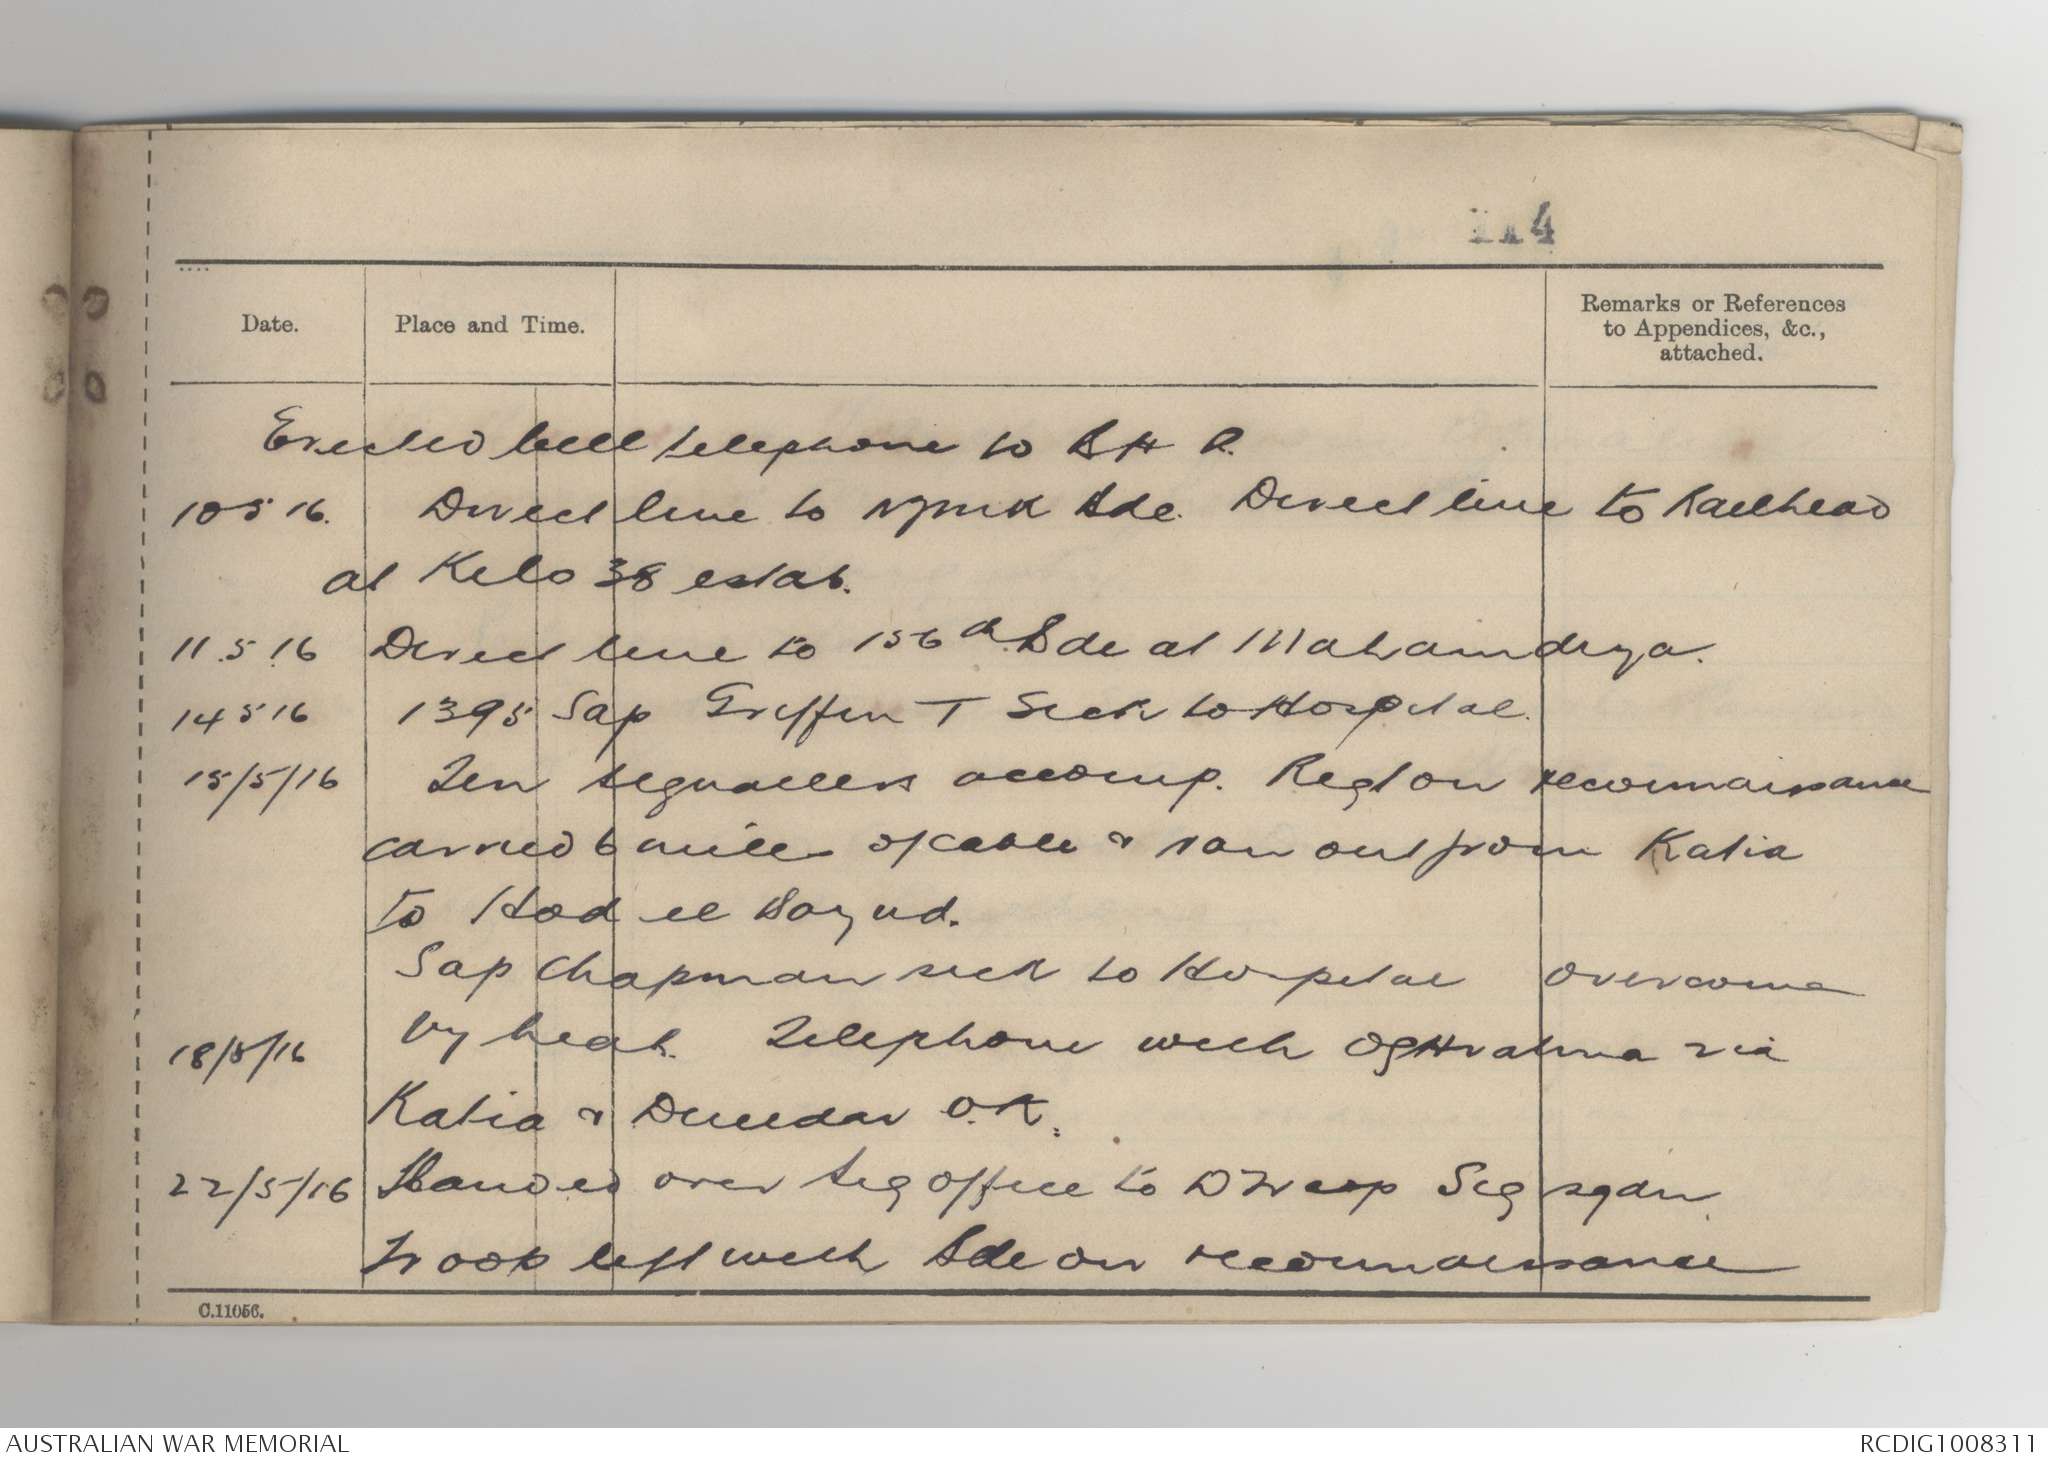 114
Date. Place and Time. Remarks or References to Appendices, &c., attached.
Erected bell telephone to B H Q.
10 5 16. Direct line to Bde. Direct line to Railhead
at Kilo 38 estab.
11.5.16 Direct line to 156th Bde at Mahamdiya.
14 5 16 1395 Sap Griffin T Sick to Hospital.
15/5/16 Ten signallers accomp. Regt on reconnaissance
carried 6 miles of cable & ran out from Katia
to Hod el Sayud.
Sap Chapman sick to Hospital overcome
18/5/16 by heat. Telephone with Oghratina via
Katia & Dueidar O.K.
22/5/16 Handed over sig office to D Troop Sig sqdn.
Troop left with Bde on reconnaissance
C.11056.
AUSTRALIAN WAR MEMORIAL
RCDIG1008311